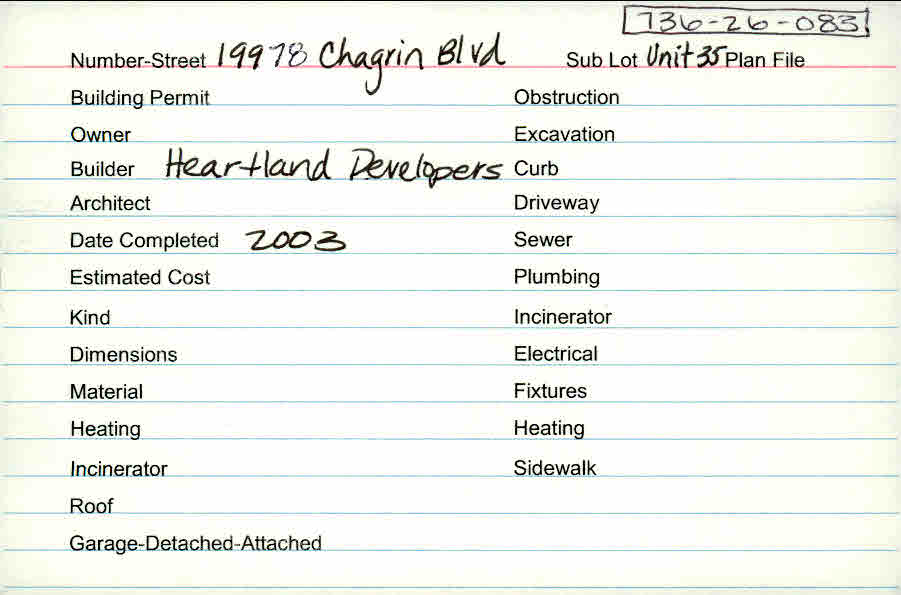 736-26-083
Number-Street 19978 Chagrin Blvd Sub Lot Unit 35 Plan File
Building Permit Obstruction
Owner Excavation
Builder Heartland Developers Curb
Architect Driveway
Date Completed 2003 Sewer
Estimated Cost Plumbing
Kind Incinerator
Dimensions Electrical
Material Fixtures
Heating Heating
Incinerator Sidewalk
Roof
Garage-Detached-Attached